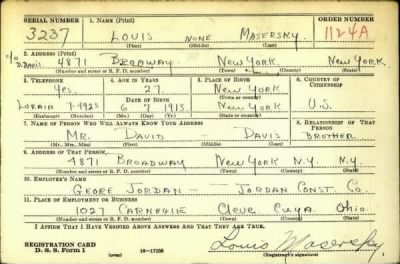 SERIAL NUMBER 1. NAME (Print) ORDER NUMBER
3237 LOUIS NONE MASERSKY 1124A
(First) (Middle) (Last)
2. ADDRESS (Print)
c/o D. DAVIS 4871 BROADWAY NEW YORK. NEW YORK.
(Number and street or R. F. D. number) (Town) (County) (State)
3. TELEPHONE 4. AGE IN YEARS 5. PLACE OF BIRTH 6. COUNTRY OF CITIZENSHIP
Yes. 27. NEW YORK
DATE OF BIRTH (Town or county)
LORAIN 7-4923 6 7 1913 NEW YORK U.S.
(Exchange) (Number) (Mo.) (Day) (Yr.) (State or country)
7. NAME OF PERSON WHO WILL ALWAYS KNOW YOUR ADDRESS 8. RELATIONSHIP OF THAT PERSON
MR. DAVID — DAVIS BROTHER
(Mr., Mrs., Miss) (First) (Middle) (Last)
9. ADDRESS OF THAT PERSON
4871 BROADWAY NEW YORK N.Y. N.Y.
(Number and street or R. F. D. number) (Town) (County) (State)
10. EMPLOYER'S NAME
GEORE JORDAN — JORDAN CONST. CO.
11. PLACE OF EMPLOYMENT OR BUSINESS
1027 CARNEGIE CLEVE CUYA. OHIO.
(Number and street or R. F. D. number) (Town) (County) (State)
I AFFIRM THAT I HAVE VERIFIED ABOVE ANSWERS AND THAT THEY ARE TRUE.
REGISTRATION CARD
D. S. S. Form 1 (over) Louis Masersky
(Registrant's signature)